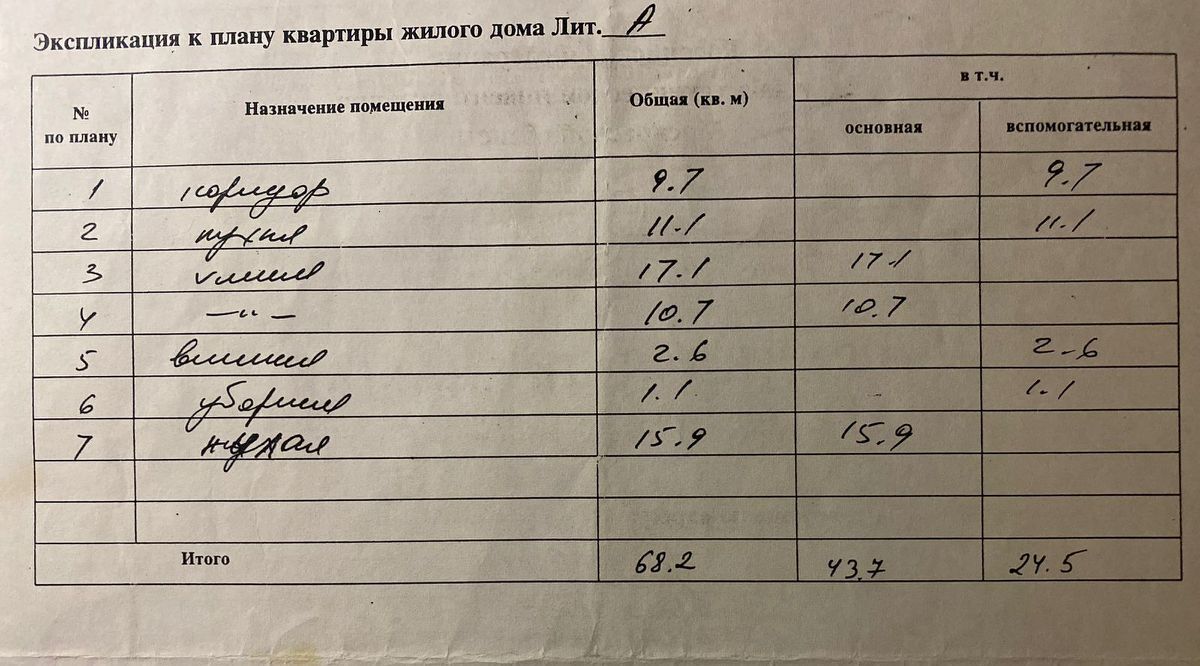 Экспликация к плану квартиры жилого дома Лит. А
№ по плану Назначение помещения Общая (кв. м) в т.ч.
основная вспомогательная
1 коридор 9.7 9.7
2 кухня 11.1 11.1
3 жилая 17.1 17.1
4 —"— 10.7 10.7
5 ванная 2.6 2.6
6 уборная 1.1 - 1.1
7 жилая 15.9 15.9
Итого 68.2 43.7 24.5